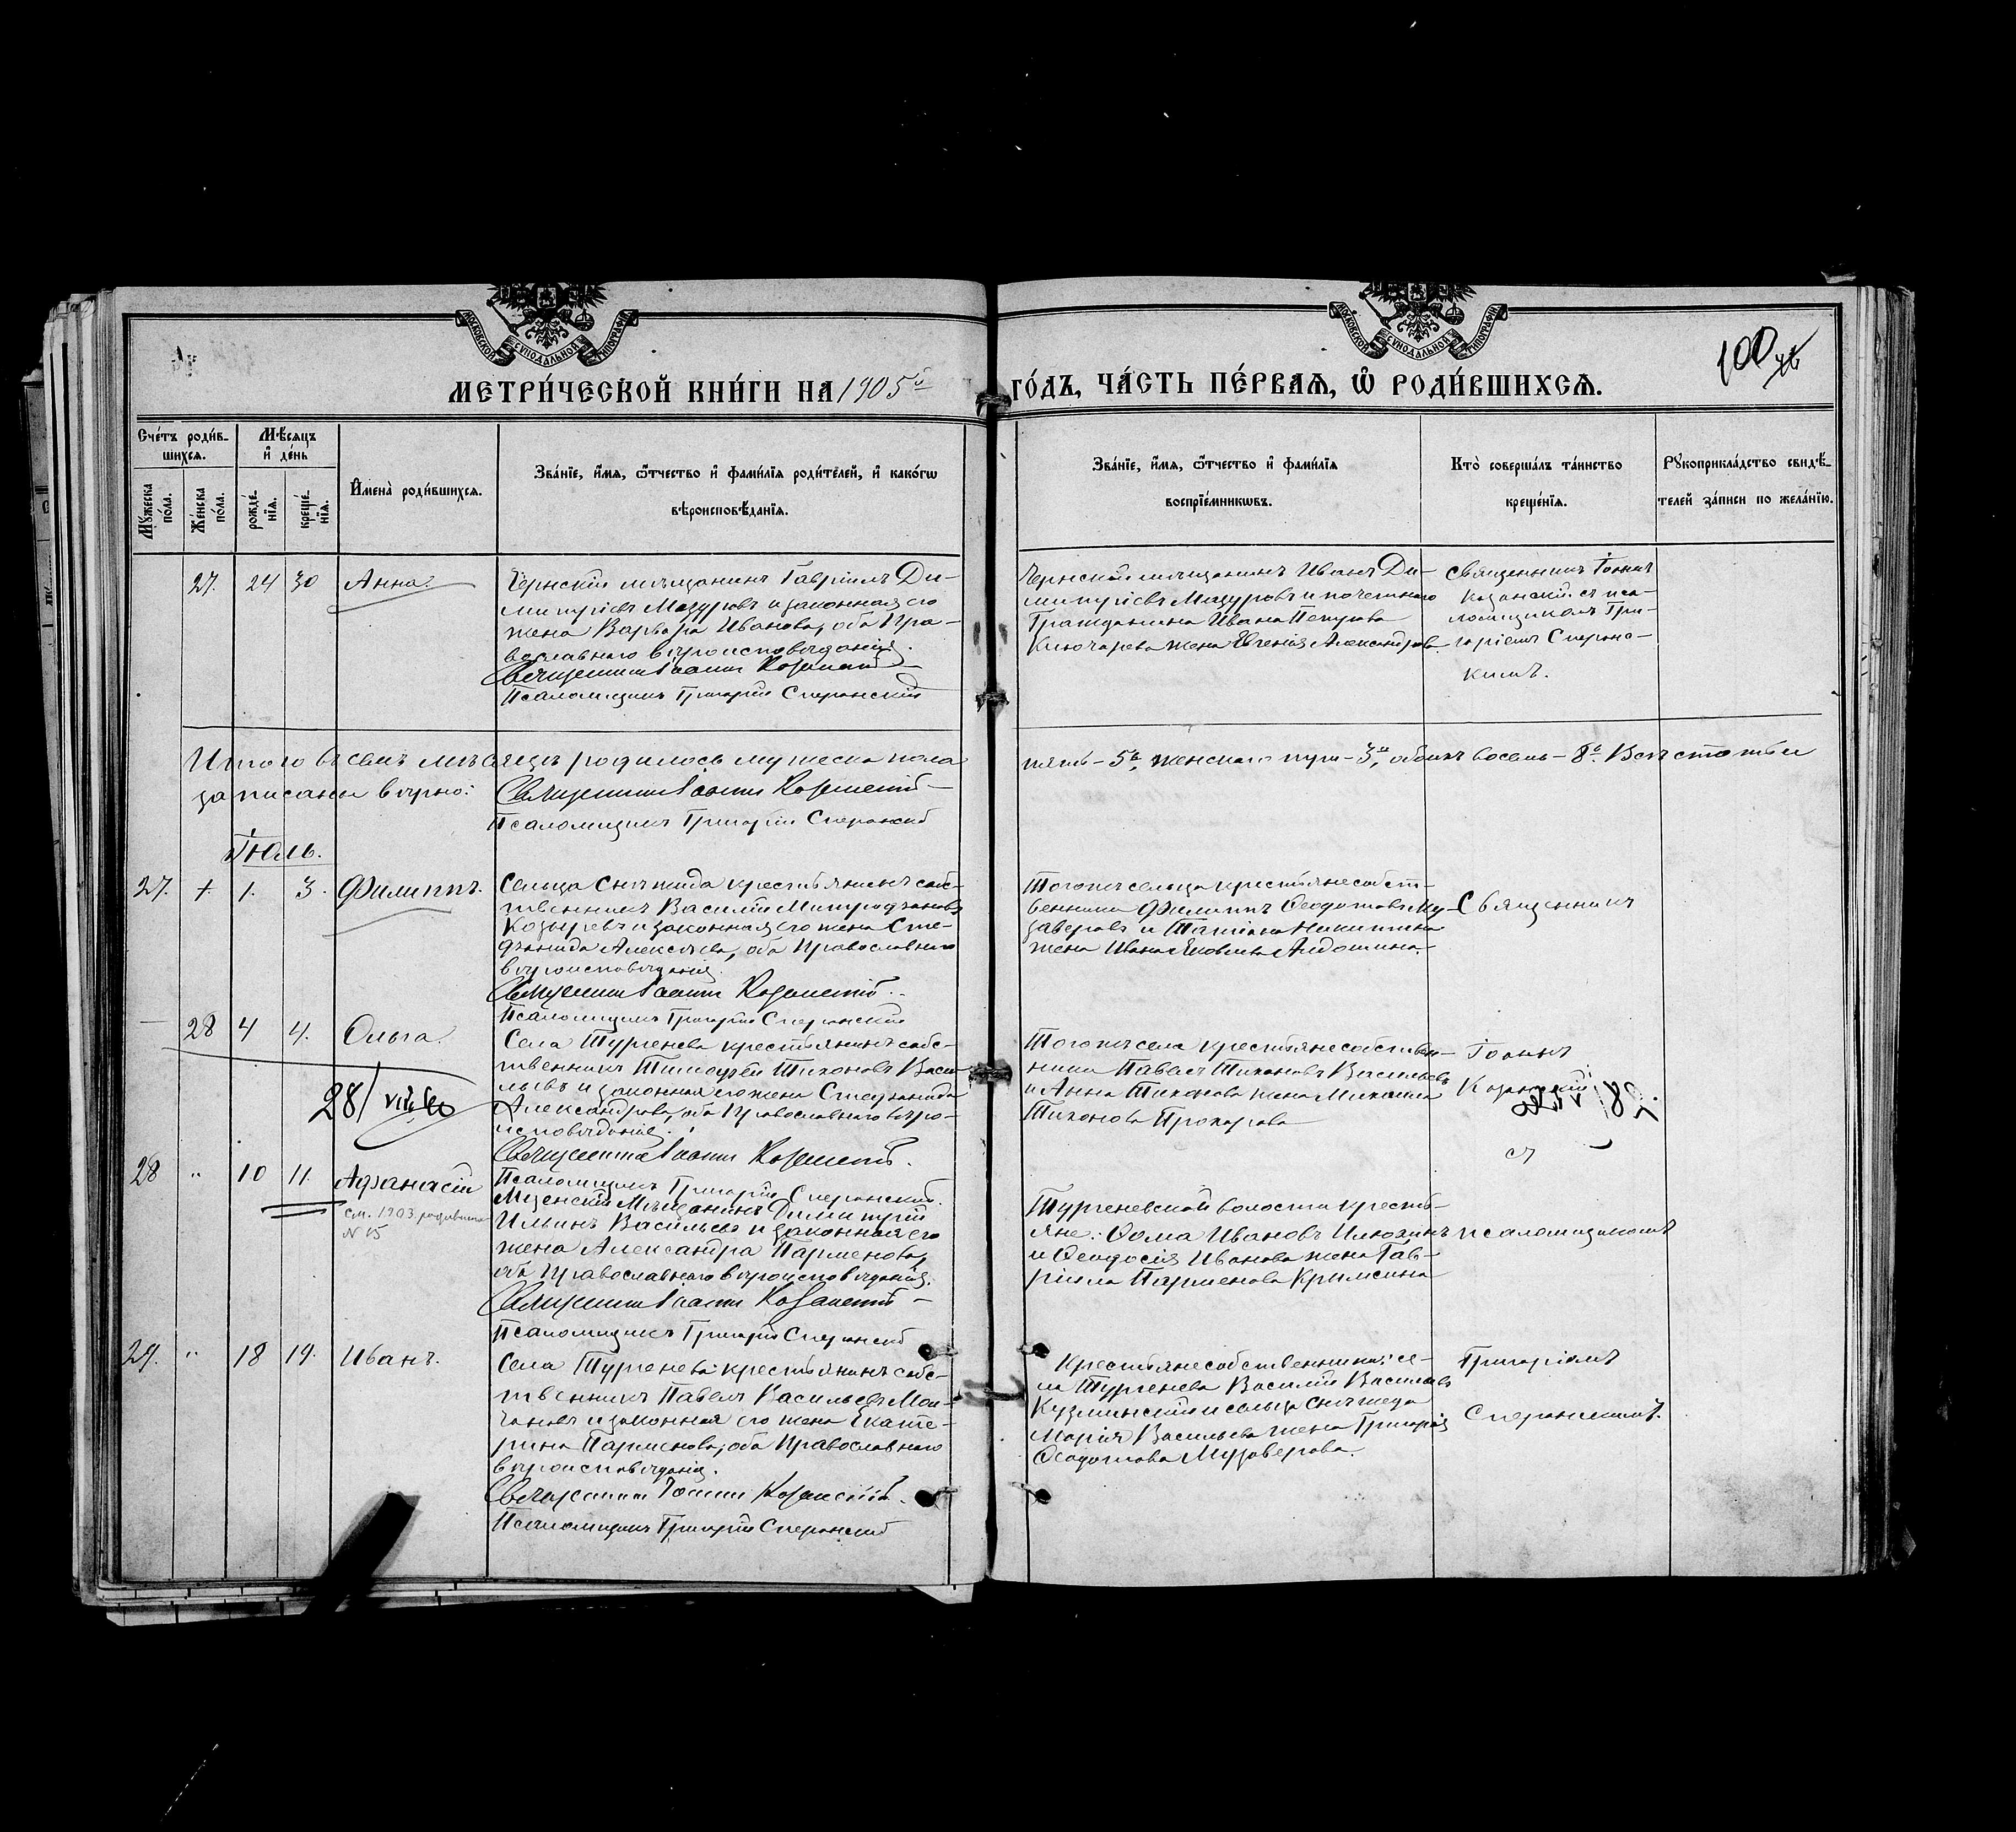 МОСКОВСКОЙ СѴНОДАЛЬНОЙ ТИПОГРАФІИ
МОСКОВСКОЙ СѴНОДАЛЬНОЙ ТИПОГРАФІИ
100
МЕТРИ́ЧЕСКОЙ КНИ́ГИ НА 1905й ГО́ДЪ, ЧА́СТЬ ПЕ́РВАЯ, Ѡ РОДИ́ВШИХСЯ.
Счéтъ роди́в-
шихся.
Мѣ́сяцъ
и дéнь
Мꙋ́жеска
по́ла.
Жéнска
по́ла.
рождé-
нїя.
крещé-
нїя.
Имена̀ роди́вшихся.
Звáнїе, и́мя, ѻ́тчество и фами́лїя роди́телей, и како́гѡ
вѣроисповѣ́данїя.
Звáнїе, и́мя, ѻ́тчество и фами́лїя
воспрїéмникѡвъ.
Кто̀ совершáлъ тáинство
крещéнїя.
Рꙋкоприклáдство свидѣ́-
телей зáписи по желáнїю.
27. 24 30 Анна.
Чернскій мѣщанинъ Гавріилъ Ди-
митріевъ Мазуровъ и законная его
жена Варвара Иванова, оба Пра-
вославнаго вѣроисповѣданія.
Священникъ Іоаннъ Казанскій
Псаломщикъ Григорій Сперанскій
Чернскій мѣщанинъ Иванъ Ди-
митріевъ Мазуровъ и почетнаго
Гражданина Ивана Петрова
Ключарева жена Евгенія Александрова.
Священникъ Іоаннъ
Казанскій съ пса-
ломщикомъ Гри-
горіемъ Сперанс-
кимъ.
Итого въ семъ мѣсяцѣ родилось мужеска пола
пять - 5ть, женскаго пола - 3и, обоихъ восемь - 8ь. Всѣ статьи
записаны вѣрно:
Священникъ Іоаннъ Казанскій
Псаломщикъ Григорій Сперанскій
Іюль.
27. 1. 3. Филиппъ.
Сельца Снѣжеда крестьянинъ собс-
твенникъ Василій Митрофановъ
Козыревъ и законная его жена Сте-
фанида Алексѣева, оба Православнаго
вѣроисповѣданія.
Священникъ Іоаннъ Казанскій.
Псаломщикъ Григорій Сперанскій
Тогожъ сельца крестьяне собст-
венники Филиппъ Ѳедотовъ Му-
заверовъ и Татіана Никитина
жена Ивана Яковлева Алдошина.
Священникъ
28 4 4. Ольга.
Села Тургенева крестьянинъ собс-
твенникъ Тимофей Тихоновъ Васи-
льевъ и законная его жена Стефанида
Александрова, оба Православнаго вѣро-
исповѣданія.
Священникъ Іоаннъ Казанскій.
Псаломщикъ Григорій Сперанскій.
Тогожъ села крестьяне собствен-
ники Павелъ Тихоновъ Васильевъ
и Анна Тихонова жена Михаила
Тихонова Прохорова
Іоаннъ
Казанскій
съ
28/VIII 60
28 " 10 11. Афанасій
см. 1903 родившіеся
N 15
Мценскій Мѣщанинъ Димитрій
Ильинъ Васильевъ и законная его
жена Александра Парменова,
оба Православнаго вѣроисповѣданія.
Священникъ Іоаннъ Казанскій
Псаломщикъ Григорій Сперанскій
Тургеневской волости кресть-
яне: Ѳома Ивановъ Илюхинъ
и Ѳеодосія Иванова жена Гав-
ріила Парменова
псаломщикомъ
29. " 18 19. Иванъ.
Села Тургенева крестьянинъ собс-
твенникъ Павелъ Васильевъ Мол-
чановъ и законная его жена Екате-
рина Парменова, оба Православнаго
вѣроисповѣданія.
Священникъ Іоаннъ Казанскій.
Псаломщикъ Григорій Сперанскій
Крестьяне собственники: се-
ла Тургенева Василій Васильевъ
Кузминскій и сельца Снѣжеда
Марія Васильева жена Григорія
Ѳедотова Музаверова.
Григоріемъ
Сперанскимъ.